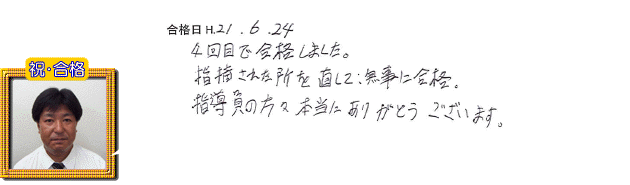 合格日 H.21.6.24
4回目で合格しました。
祝・合格
指摘された所を直して、無事に合格。
指導員の方々本当にありがとうございます。